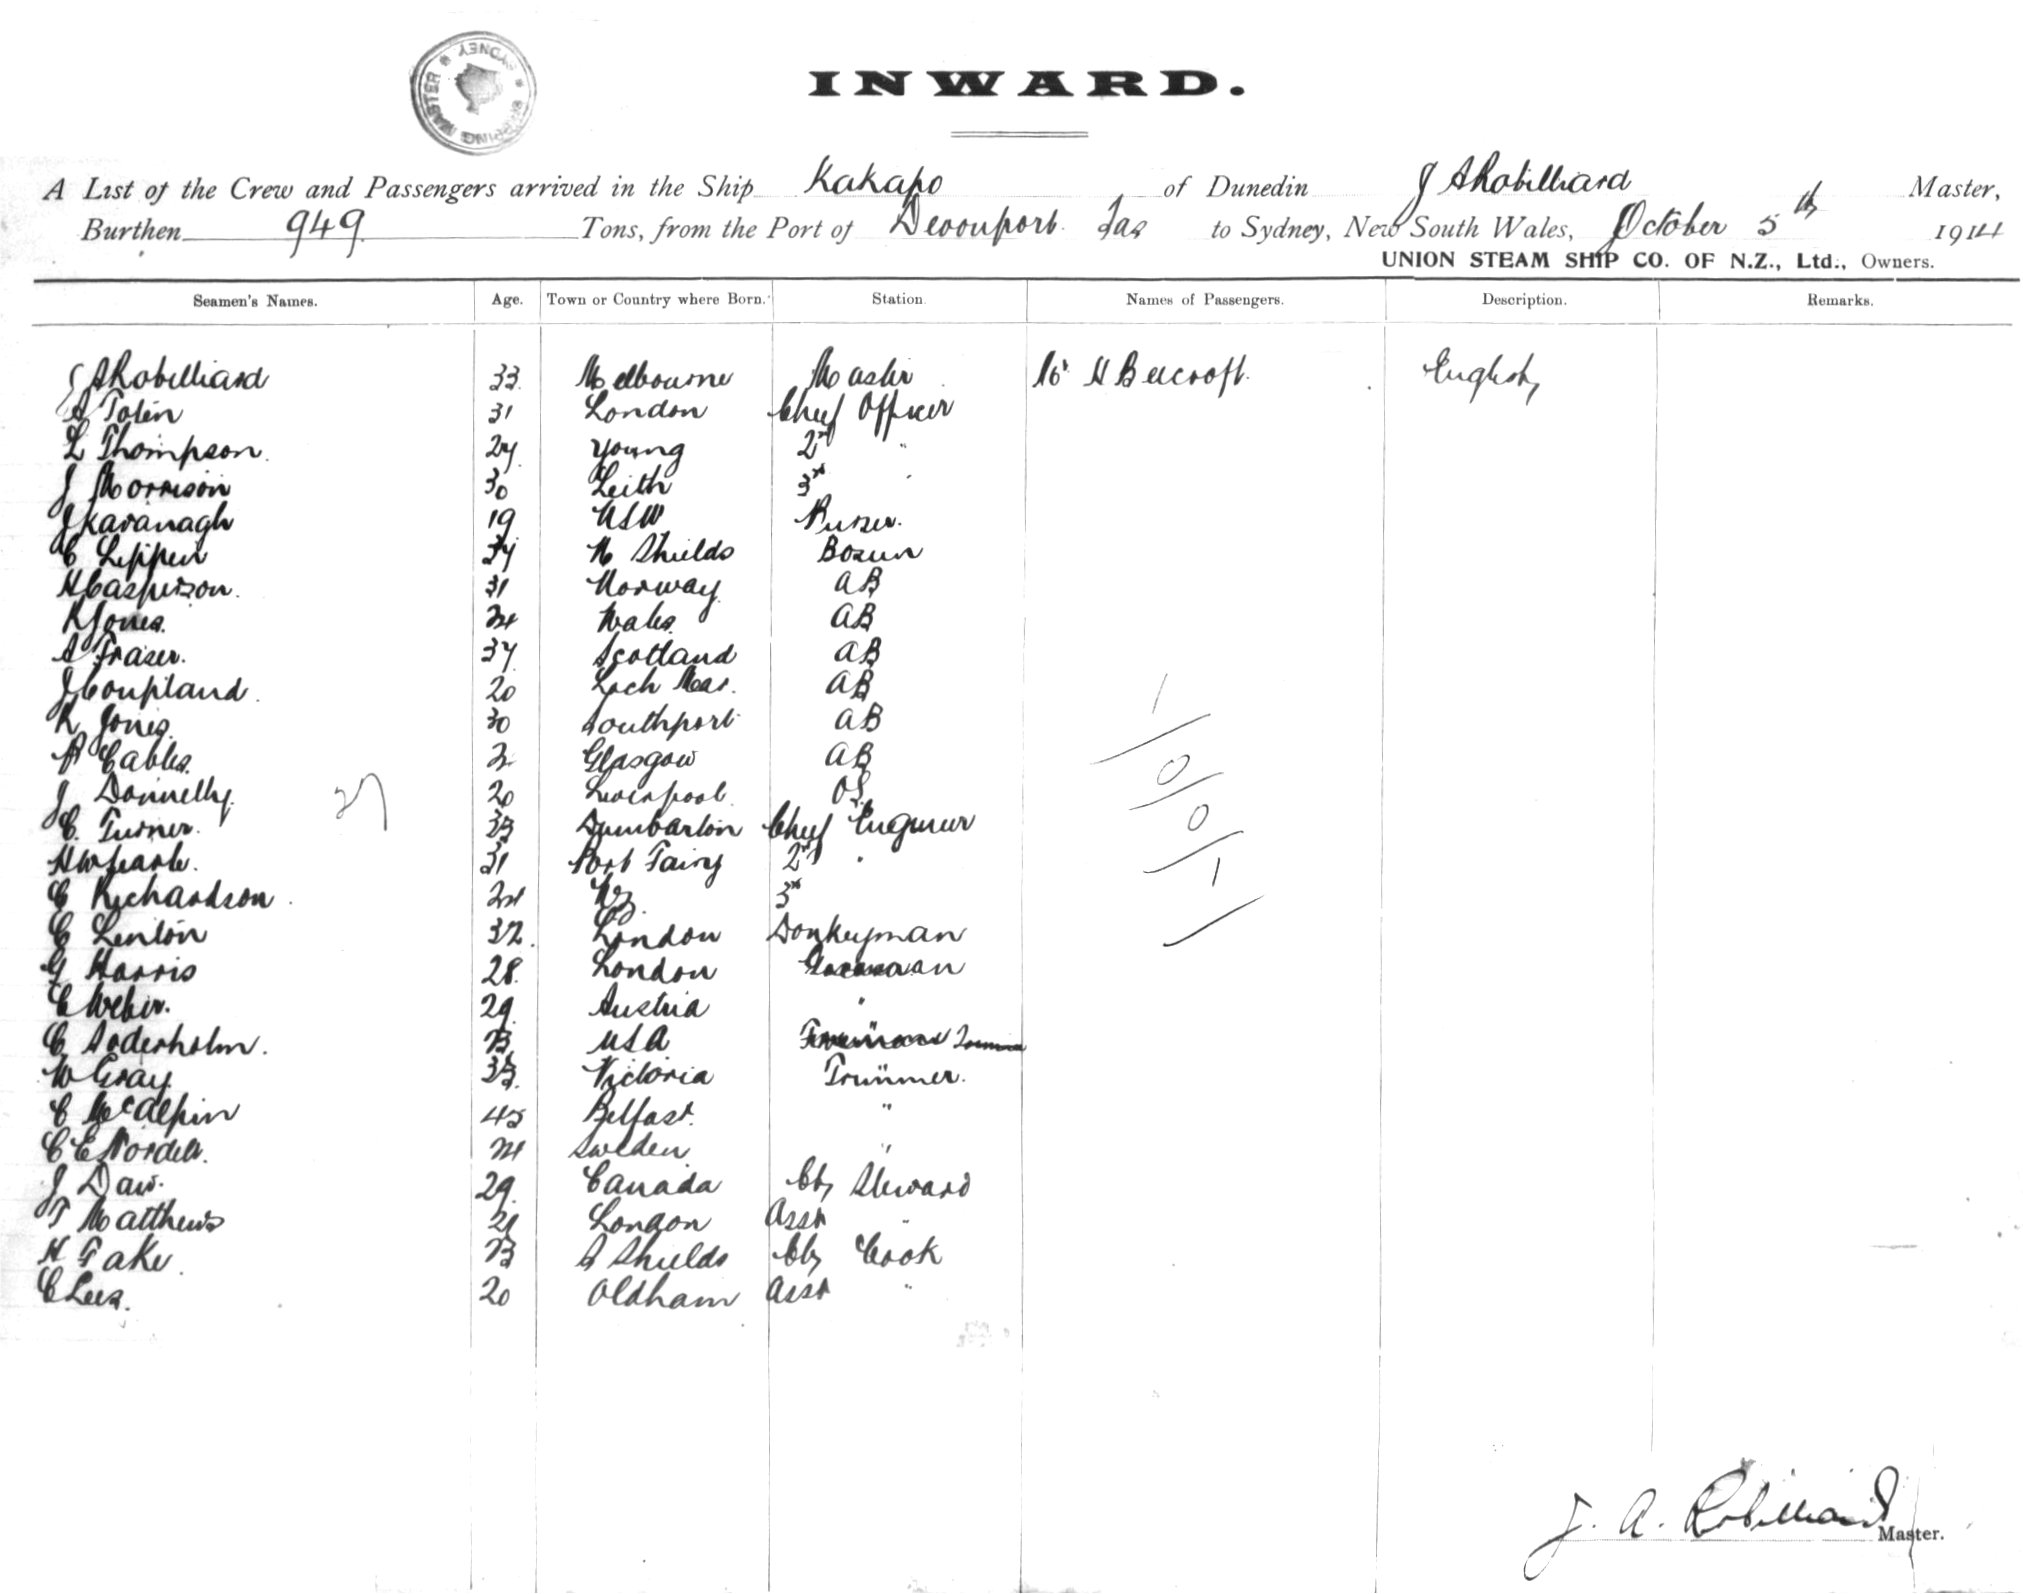 SHIPPING MASTER * SYDNEY *
INWARD.
A List of the Crew and Passengers arrived in the Ship Kakapo of Dunedin J A Robilliard Master,
Burthen 949 Tons, from the Port of Devonport Tas to Sydney, New South Wales, October 5th 1914
UNION STEAM SHIP CO. OF N.Z., Ltd., Owners.
Seamen's Names. Age. Town or Country where Born. Station. Names of Passengers. Description. Remarks.
J A Robilliard 33 Melbourne Master Mr H Beecroft. English
A Tolin 31 London Chief Officer
L Thompson. 27 Young 2nd "
J Morrison 30 Leith 3rd "
J Kavanagh 19 NSW Purser.
C Lippen 37 N Shields Bosun
H Casperson. 31 Norway AB
R Jones. 24 Wales. AB
A Fraser. 37 Scotland AB
J Coupland. 20 Loch Mar. AB
R Jones. 30 Southport AB
Cables. Glasgow AB
J Donnelly. 20 Liverpool OS
27
C. Turner. 33 Dumbarton Chief Engineer
H W Searle. 31 Port Fairy 2nd "
C Richardson. 24 NZ. 3rd
C Lenton 32. London Donkeyman
G Harris 28. London
C Weber. 29. Austria "
C Soderholm. 23 USA
W Gray 33. Victoria Trimmer.
C McAlpin 45 Belfast. "
C E Nordell. 24 Sweden "
J Daw. 29. Canada Ch Steward
T Matthews 21 London Asst "
H Take. 23 S Shields Ch Cook
C Lees. 20 Oldham Asst "
1/0/0/1
J. A. Robilliard Master.